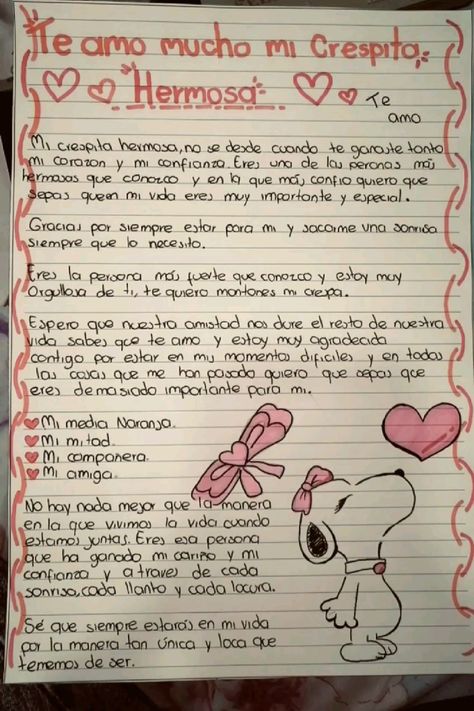 Te amo mucho mi Crespita
"Hermosa"
Te
amo
Mi crespita hermosa, no se desde cuando te ganaste tanto
mi corazon y mi confianza. Eres una de las peronas más
hermosas que conozco y en la que más confio quiero que
sepas que en mi vida eres muy importante y especial.
Gracias por siempre estar para mi y sacarme una sonrisa
siempre que lo necesito.
Eres la persona más fuerte que conozco y estoy muy
Orgullosa de ti, te quiero montones mi crespa.
Espero que nuestra amistad nos dure el resto de nuestra
vida sabes que te amo y estoy muy agradecida
contigo por estar en mis momentos dificiles y en todas
las cosas que me han pasado quiero que sepas que
eres demasiado importante para mi.
Mi media Naranja.
Mi mitad.
Mi compañera.
Mi amiga.
No hay nada mejor que la manera
en la que vivimos la vida cuando
estamos juntas. Eres esa persona
que ha ganado mi cariño y mi
confianza y a traves de cada
sonrisa, cada llanto y cada locura.
Sé que siempre estarás en mi vida
por la manera tan única y loca que
tenemos de ser.